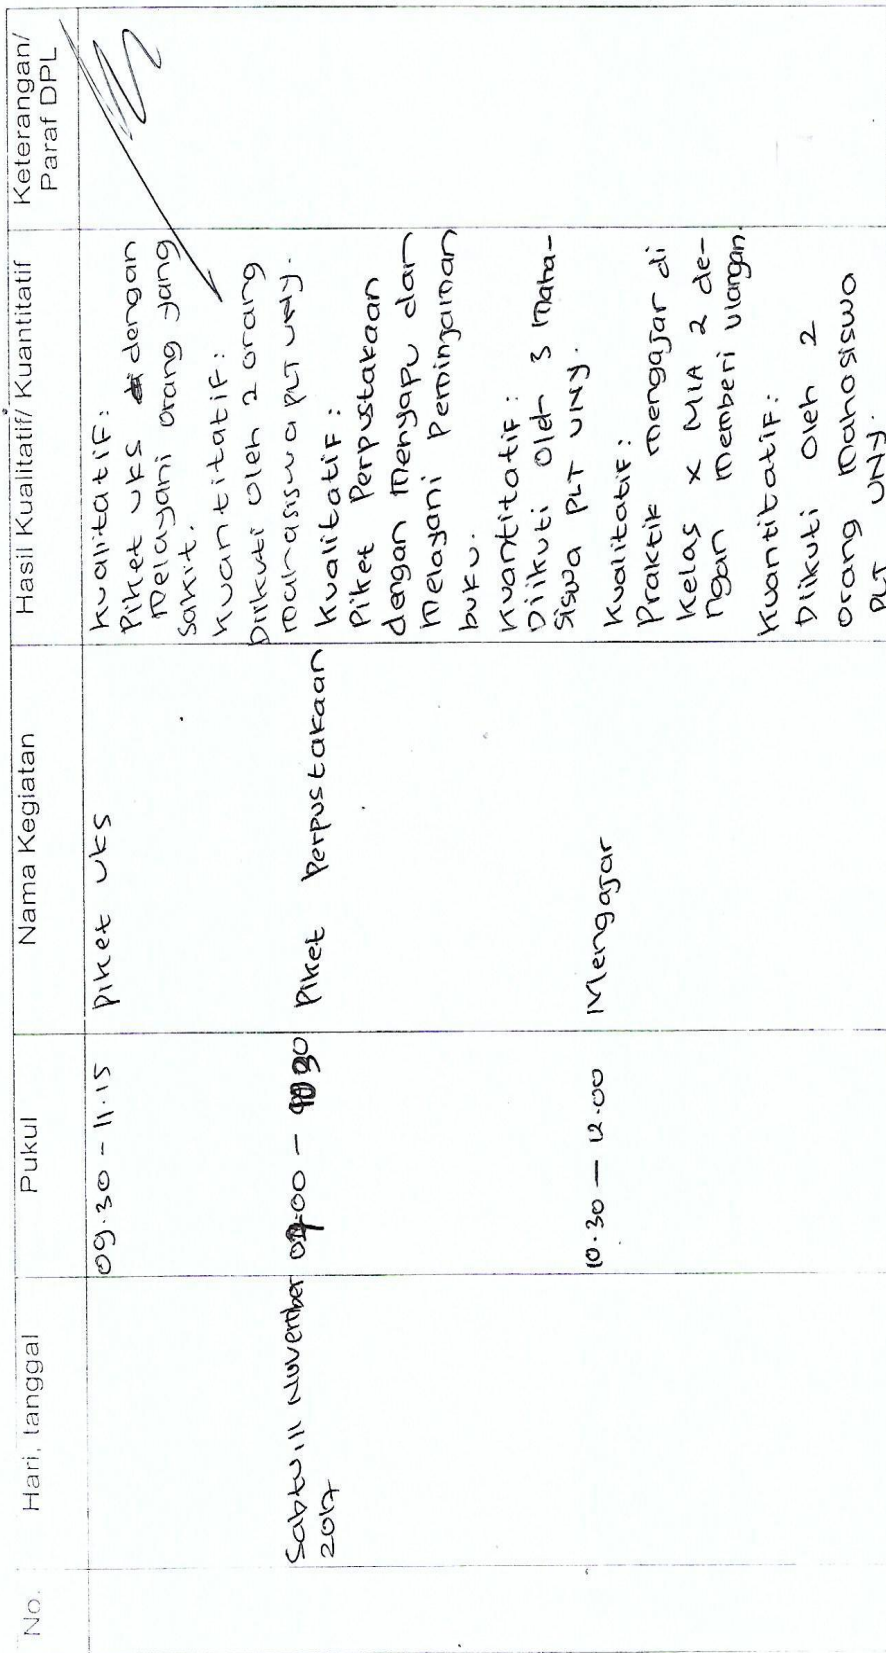 No.
Hari, tanggal
Pukul
Nama Kegiatan
Hasil Kualitatif/ Kuantitatif
Keterangan/
Paraf DPL
09.30 - 11.15
piket UKS
Kualitatif:
Piket UKS dengan
melayani orang yang
sakit.
Kuantitatif:
Diikuti oleh 2 orang
mahasiswa PLT UNY.
Sabtu, 11 November
2017
Piket Perpustakaan
Kualitatif:
Piket Perpustakaan
dengan menyapu dan
melayani Peminjaman
buku.
Kuantitatif:
Diikuti oleh 3 maha-
siswa PLT UNY.
10.30 - 12.00
Mengajar
Kualitatif:
Praktik mengajar di
kelas X MIA 2 de-
ngan memberi ulangan.
Kuantitatif:
Diikuti oleh 2
orang mahasiswa
PLT UNY.